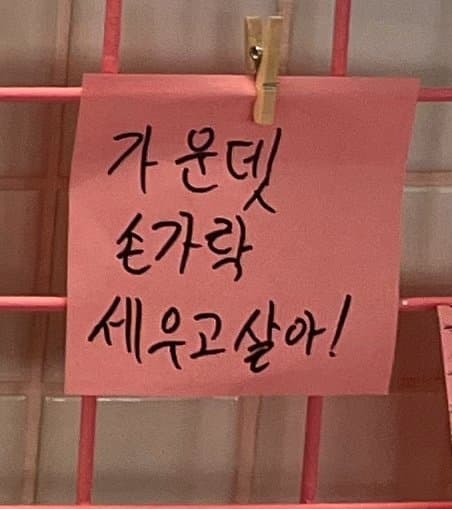 가운뎃
손가락
세우고살아!